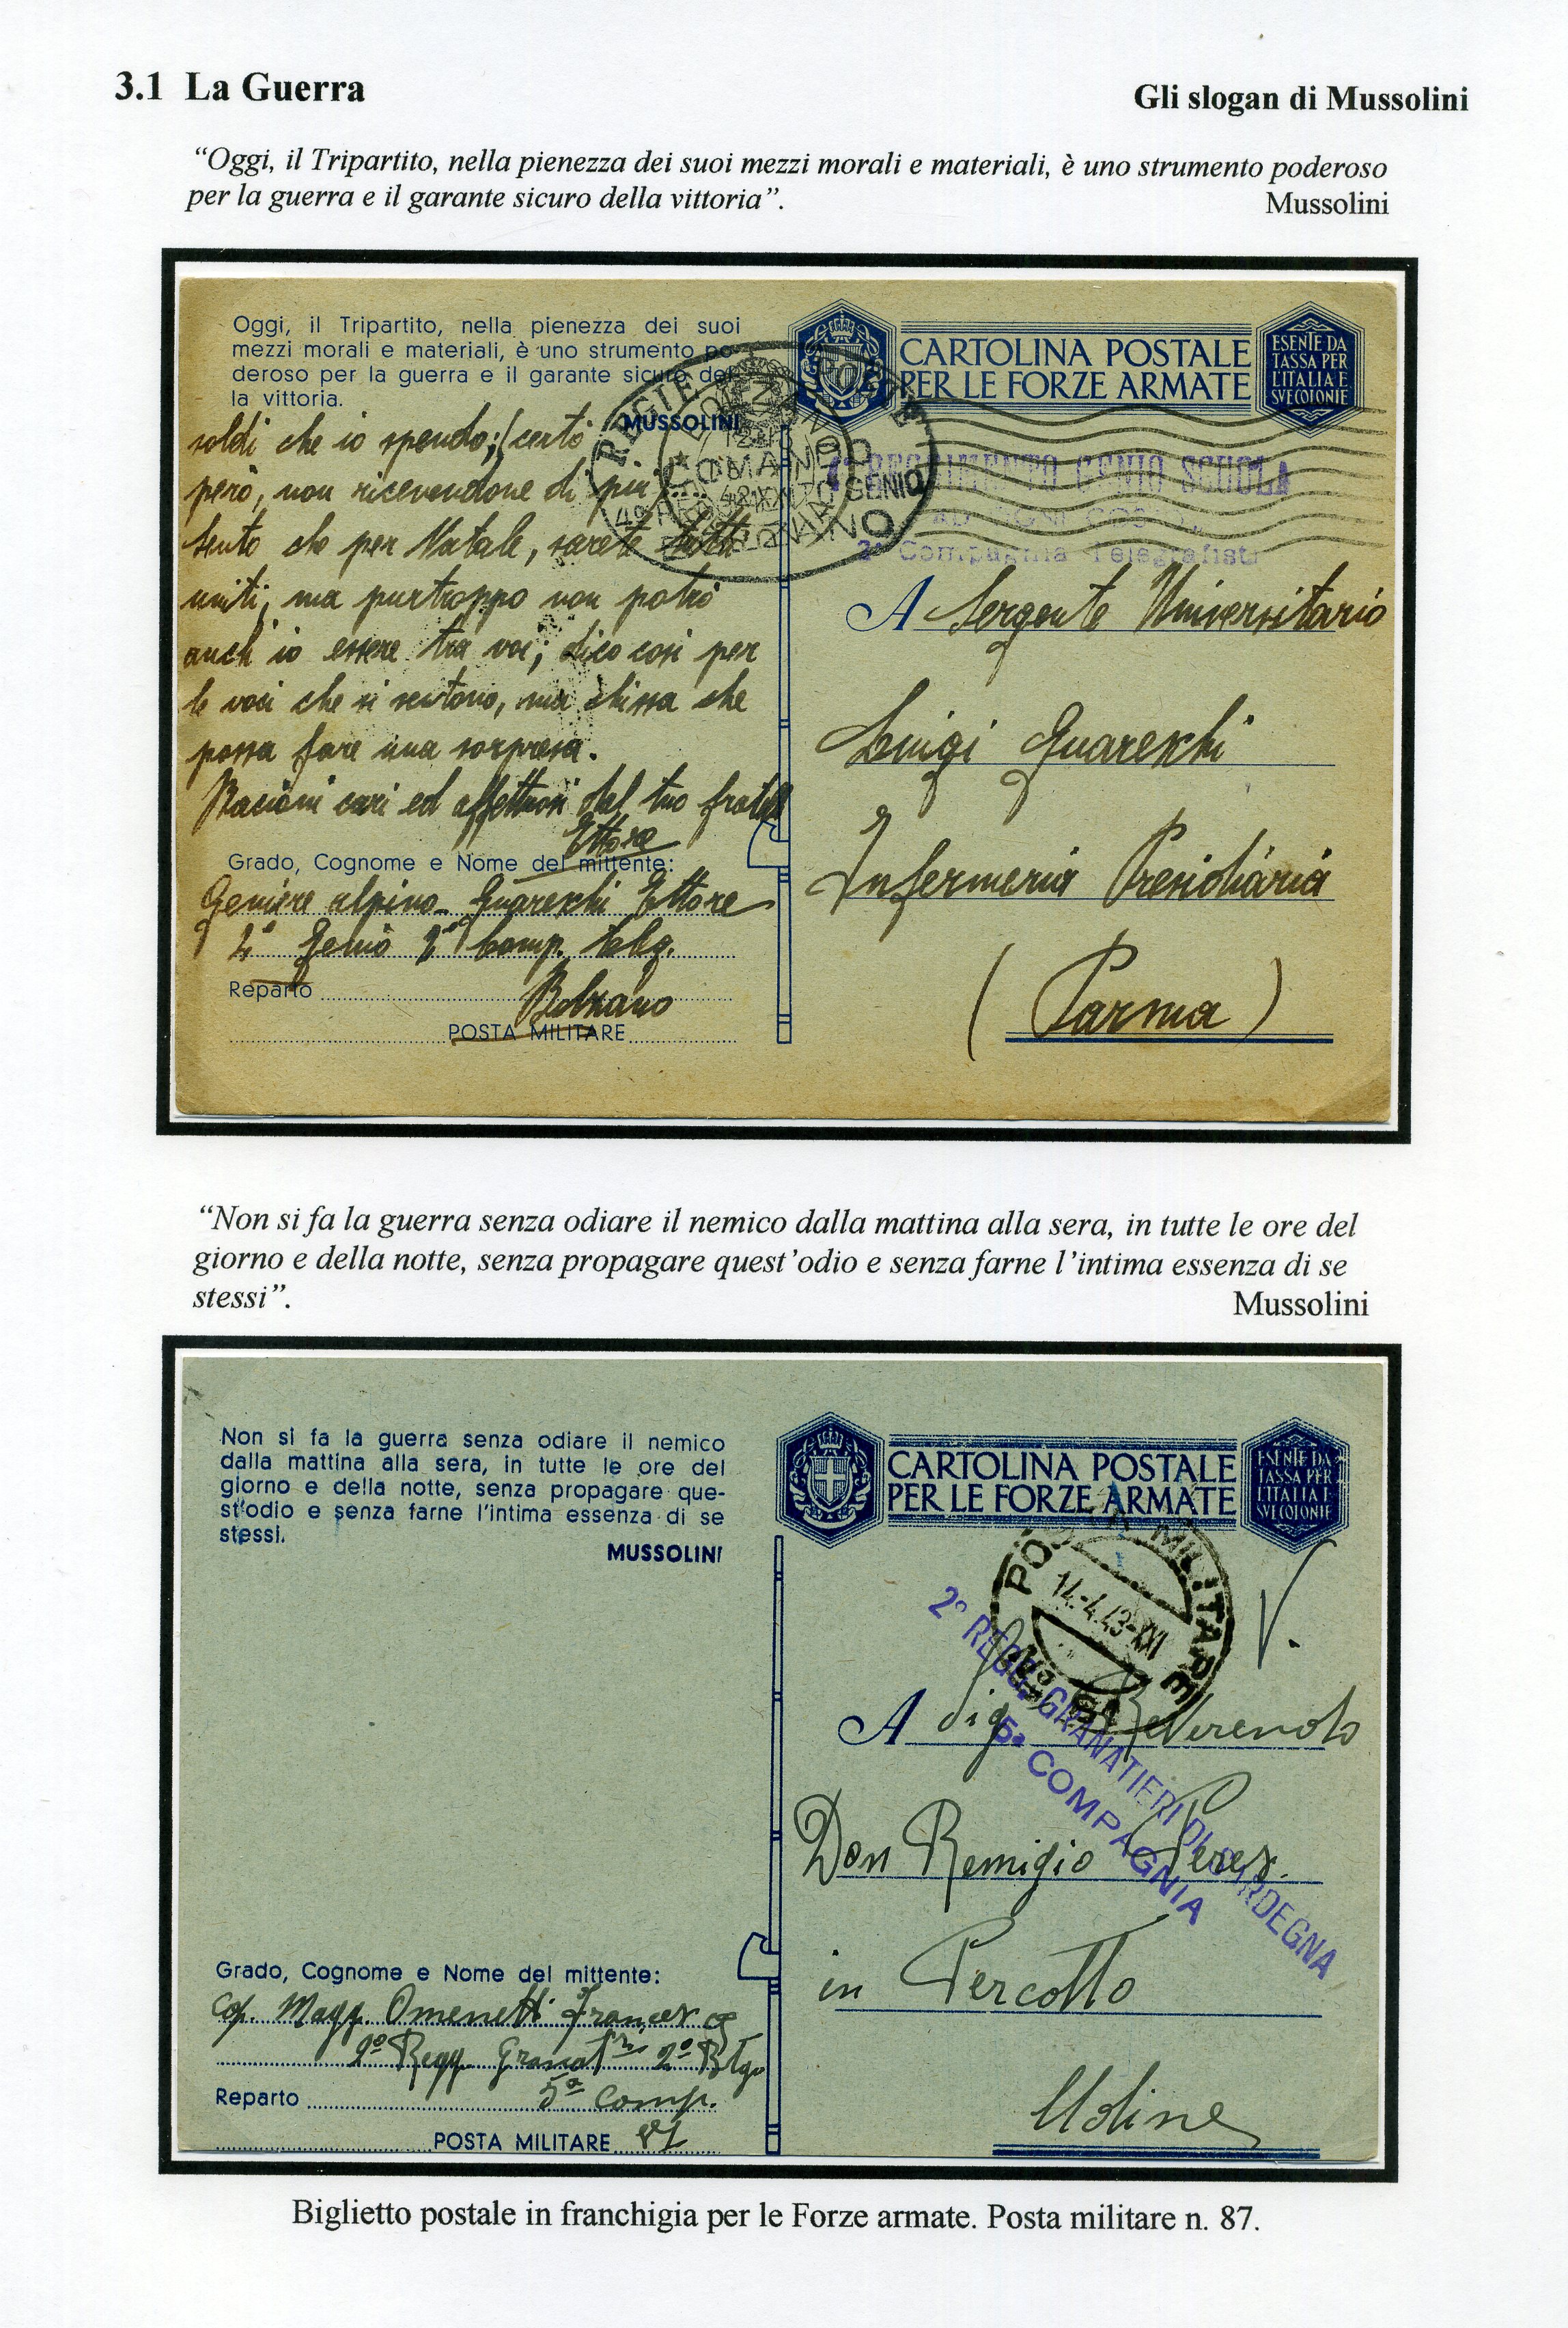 3.1 La Guerra
Gli slogan di Mussolini
“Oggi, il Tripartito, nella pienezza dei suoi mezzi morali e materiali, è uno strumento poderoso
per la guerra e il garante sicuro della vittoria”.
Mussolini
Oggi, il Tripartito, nella pienezza dei suoi
mezzi morali e materiali, è uno strumento po-
deroso per la guerra e il garante sicuro del-
la vittoria.
MUSSOLINI
soldi che io spendo; (certo
però, non ricevendone di più)....
Sento che per Natale, sarete tutti
uniti, ma purtroppo non potrò
anch'io essere tra voi; dico così per
le voci che si sentono, ma chissa che
possa fare una sorpresa.
Bacioni cari ed affettuosi dal tuo fratel
Ettore
Grado, Cognome e Nome del mittente:
Geniere alpino Guareschi Ettore
4° Genio 2ª Comp. Telg.
Reparto
Bolzano
POSTA MILITARE
CARTOLINA POSTALE
PER LE FORZE ARMATE
ESENTE DA
TASSA PER
L'ITALIA E
SVE COLONIE
4° REGGIMENTO GENIO SCUOLA
2ª Compagnia Telegrafisti
A Sergente Universitario
Luigi Guareschi
Infermeria Presidiaria
(Parma)
“Non si fa la guerra senza odiare il nemico dalla mattina alla sera, in tutte le ore del
giorno e della notte, senza propagare quest’odio e senza farne l’intima essenza di se
stessi”.
Mussolini
Non si fa la guerra senza odiare il nemico
dalla mattina alla sera, in tutte le ore del
giorno e della notte, senza propagare que-
st'odio e senza farne l'intima essenza di se
stessi.
MUSSOLINI
Grado, Cognome e Nome del mittente:
Cap. Magg. Omenetti Francesco
2° Regg. Granat^ri 2° Btg.
Reparto 5ª Comp.
POSTA MILITARE 87
CARTOLINA POSTALE
PER LE FORZE ARMATE
ESENTE DA
TASSA PER
L'ITALIA E
SVE COLONIE
POSTA MILITARE
14.-4.43-XXI
V.
2° REGG. GRANATIERI DI SARDEGNA
5ª COMPAGNIA
A Sig. Reverendo
Don Remigio Perez.
in Percotto
Udine
Biglietto postale in franchigia per le Forze armate. Posta militare n. 87.